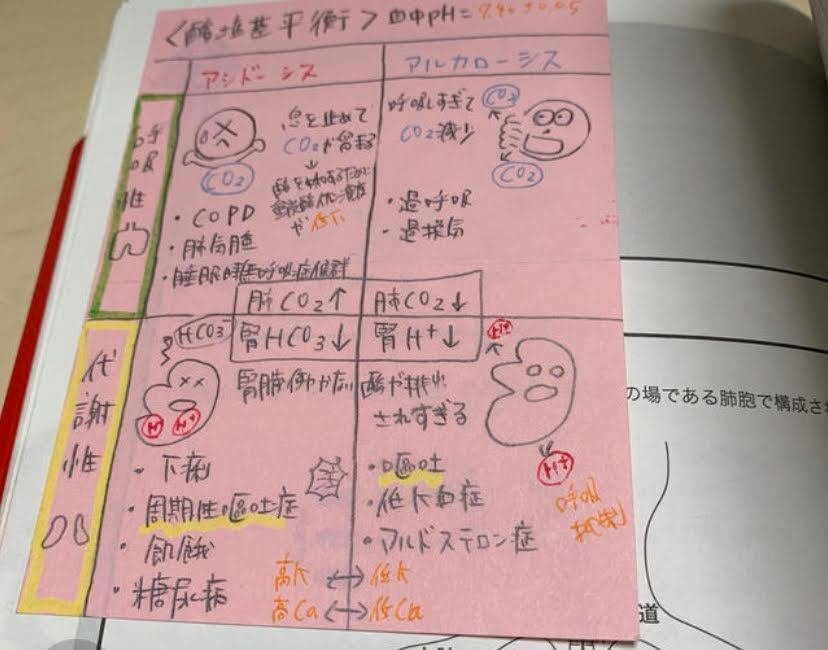 〈酸塩基平衡〉血中pH=7.40±0.05
アシドーシス
アルカローシス
呼吸性
息を止めて
CO2が留まる
↓
や低K
CO2
・COPD
・肺気腫
・睡眠時無呼吸症候群
呼吸しすぎて
CO2減少
CO2
CO2
・過呼吸
・過換気
肺CO2↑
肺CO2↓
腎HCO3↓
腎H+↓
代謝性
HCO3
H+
H+
腎臓働かない
・下痢
・周期性嘔吐症
・飢餓
・糖尿病
酸や排出
されすぎる
H+
H+
・嘔吐
・低K血症
・アルドステロン症
呼吸
抑制
高K↔低K
高Ca↔低Ca
の場である肺胞で構成さ
道